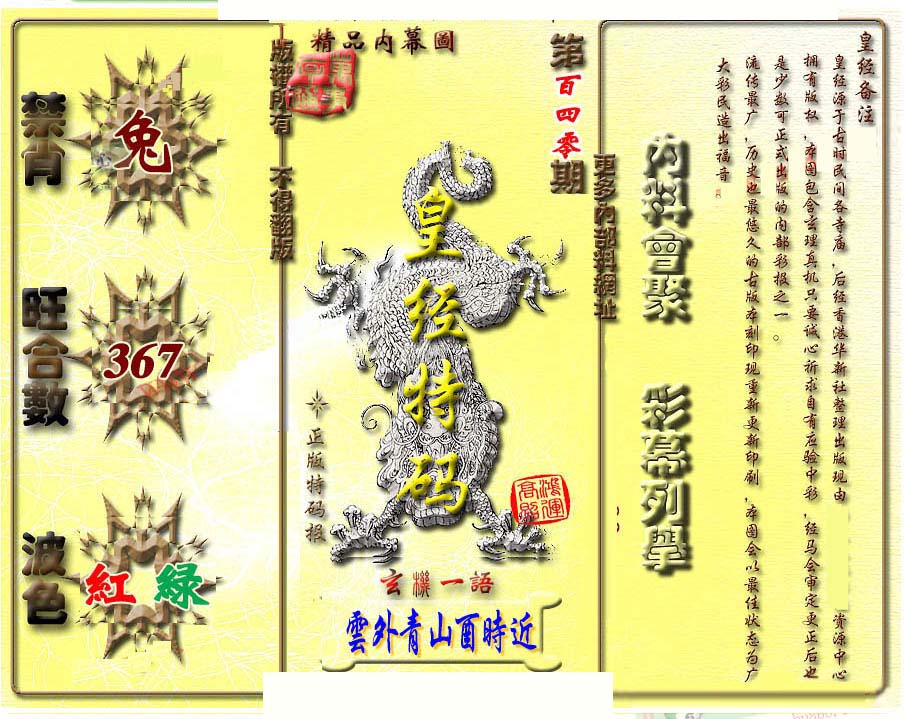 皇经备注
皇经源于古时民间各寺庙，后经香港华新社整理出版现由
资源中心
拥有版权，本图包含玄理真机只要诚心祈求自有应验中彩，经马会审定更正后也
是少数可正式出版的内部彩报之一。
流传最广，历史也最悠久的古版本刻印现重新更新印刷，本图会以最佳状态为广
大彩民造出福音
内料會聚
彩幕列舉
更多內部料網址
第百四零期
精品内幕圖
皇经特码
正版特码报
鴻運
高照
玄機一語
雲外青山酉時近
版權所有
不得翻版
禁肖
兔
旺合數
367
波色
紅 綠